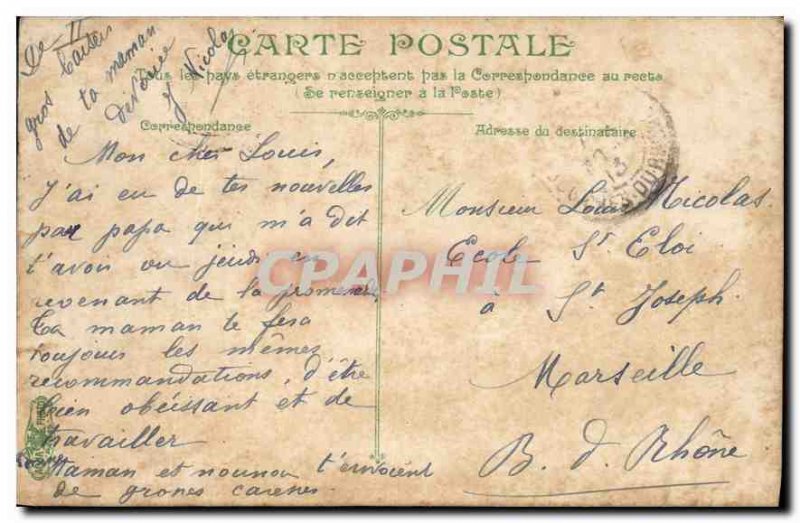 CARTE POSTALE
Tous les pays étrangers n'acceptent pas la Correspondance au recto
(Se renseigner à la Poste)
Correspondance
Adresse du destinataire
gros baisers
de ta maman
Nicolas
Mon cher Louis,
J'ai eu de tes nouvelles
par papa qui m'a dit
t'avoir vu jeudi en
revenant de la promenade
Ta maman te fera
toujours les mêmes
recommandations, d'être
bien obéissant et de
travailler
Maman et nounou t'envoient
de grones careses
Monsieur Louis Nicolas
Ecole St Eloi
à St Joseph.
Marseille
B. d. Rhône
CPAPHIL